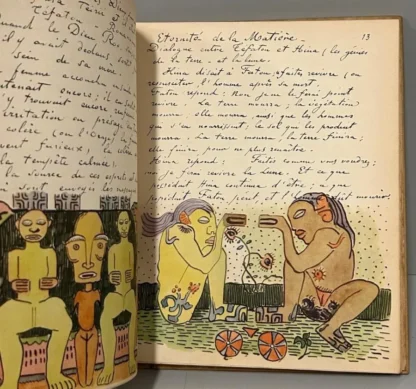 la Terre
Téfatou
quand le Dieu Ro
il y avait dedans
sein de sa
femme accoucha
tenait encore;
y trouvent encore
irritation ou présage
colère (ou l'orage)
vent furieux;
la tempête calmée.
la source de ces esprits
sont envoyés les
13
Eternité de la Matière._
Dialogue entre Téfatou et Hina (les génies
de la terre _ et la lune.
Hina disait à Fatou: "faites revivre (ou
ressusciter l'homme après sa mort.
Fatou répond: Non je ne le ferai point
revivre. La terre mourra; la végétation
mourra; elle mourra, ainsi que les hommes
qui s'en nourrissent; le sol qui les produit
mourra. La terre mourra, la terre finira;
elle finira pour ne plus renaître.
Hina répond: Faites comme vous voudrez;
moi je ferai revivre la Lune. Et ce que
possédait Hina continua d'être: ce que
possédait Fatou périt, et l'homme dut mourir.